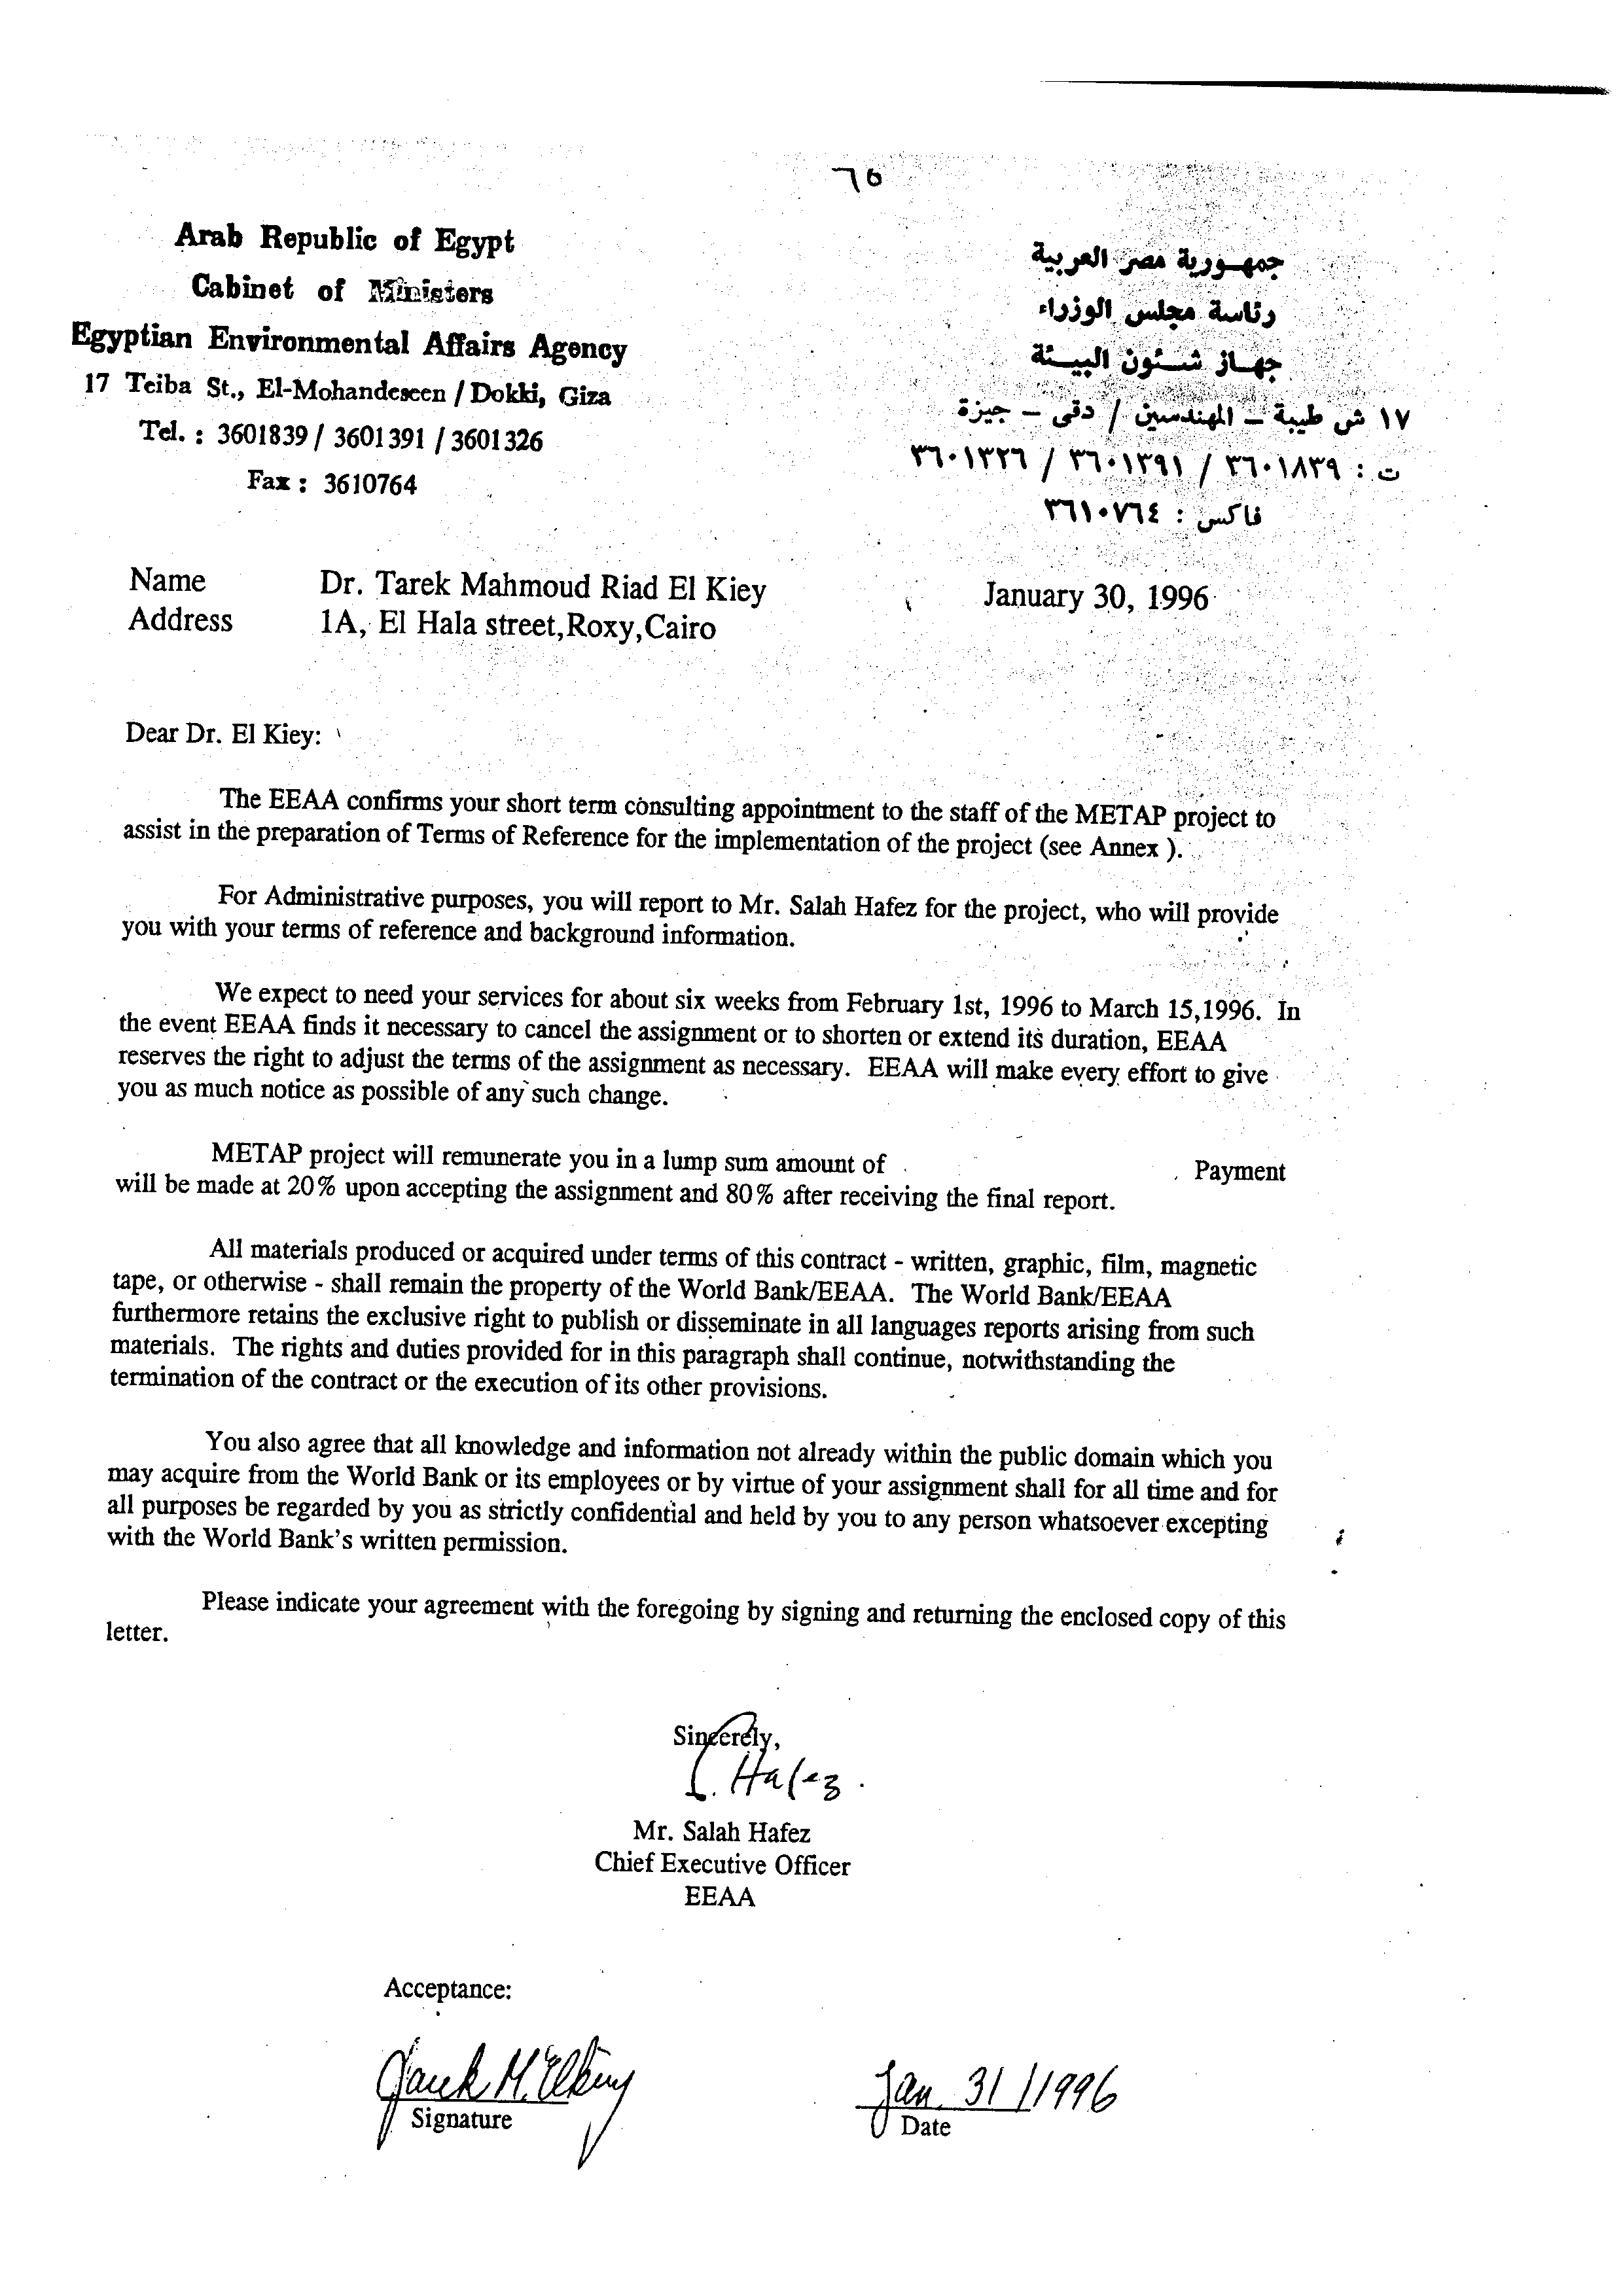 ٦٥
Arab Republic of Egypt
Cabinet of Ministers
Egyptian Environmental Affairs Agency
17 Teiba St., El-Mohandeseen / Dokki, Giza
Tel. : 3601839 / 3601391 / 3601326
Fax : 3610764
جمهورية مصر العربية
رئاسة مجلس الوزراء
جهاز شئون البيئة
١٧ ش طيبة - المهندسين / دقى - جيزة
ت : ٣٦٠١٨٣٩ / ٣٦٠١٣٩١ / ٣٦٠١٣٢٦
فاكس : ٣٦١٠٧٦٤
Name Dr. Tarek Mahmoud Riad El Kiey January 30, 1996
Address 1A, El Hala street,Roxy,Cairo
Dear Dr. El Kiey:
The EEAA confirms your short term consulting appointment to the staff of the METAP project to
assist in the preparation of Terms of Reference for the implementation of the project (see Annex ).
For Administrative purposes, you will report to Mr. Salah Hafez for the project, who will provide
you with your terms of reference and background information.
We expect to need your services for about six weeks from February 1st, 1996 to March 15,1996. In
the event EEAA finds it necessary to cancel the assignment or to shorten or extend its duration, EEAA
reserves the right to adjust the terms of the assignment as necessary. EEAA will make every effort to give
you as much notice as possible of any such change.
METAP project will remunerate you in a lump sum amount of . Payment
will be made at 20% upon accepting the assignment and 80% after receiving the final report.
All materials produced or acquired under terms of this contract - written, graphic, film, magnetic
tape, or otherwise - shall remain the property of the World Bank/EEAA. The World Bank/EEAA
furthermore retains the exclusive right to publish or disseminate in all languages reports arising from such
materials. The rights and duties provided for in this paragraph shall continue, notwithstanding the
termination of the contract or the execution of its other provisions.
You also agree that all knowledge and information not already within the public domain which you
may acquire from the World Bank or its employees or by virtue of your assignment shall for all time and for
all purposes be regarded by you as strictly confidential and held by you to any person whatsoever excepting
with the World Bank's written permission.
Please indicate your agreement with the foregoing by signing and returning the enclosed copy of this
letter.
Sincerely,
S. Hafez.
Mr. Salah Hafez
Chief Executive Officer
EEAA
Acceptance:
Tarek M. Elkiey Jan. 31 / 1996
Signature Date